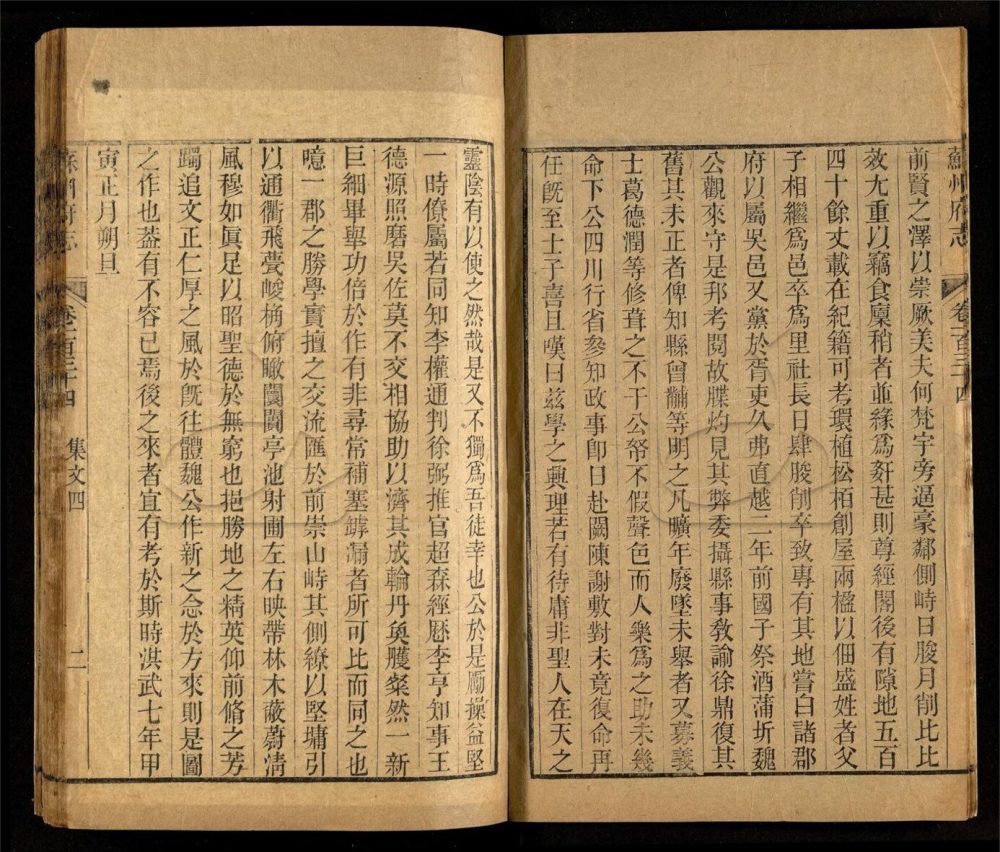 蘇州府志
卷一百三十四
前賢之澤以崇厥美夫何梵宇旁逼豪鄰側峙日朘月削比比
效尤重以竊食廩稍者並緣爲姧甚則尊經閣後有隙地五百
四十餘丈載在紀籍可考環植松栢創屋兩楹以佃盛姓者父
子相繼爲邑卒爲里社長日肆朘削卒致專有其地嘗白諸郡
府以屬吳邑又黨於胥吏久弗直越二年前國子祭酒蒲圻魏
公觀來守是邦考閱故牒灼見其弊委攝縣事敎諭徐鼎復其
舊其未正者俾知縣曾黼等明之凡曠年廢墜未舉者又募義
士葛德潤等修葺之不于公帑不假聲色而人樂爲之助未幾
命下公四川行省叅知政事卽日赴闕陳謝敷對未竟復命再
任旣至士子喜且嘆曰兹學之興理若有待庸非聖人在天之
靈陰有以使之然哉是又不獨爲吾徒幸也公於是勵操益堅
一時僚屬若同知李權通判徐弼推官超森經歷李亨知事王
德源照磨吳佐莫不交相協助以濟其成輪丹奐雘粲然一新
巨細畢舉功倍於作有非尋常補塞罅漏者所可比而同之也
噫一郡之勝學實擅之交流匯於前崇山峙其側繚以堅墉引
以通衢飛甍峻桷俯瞰闤闠亭池射圃左右映帶林木蔽蔚淸
風穆如眞足以昭聖德於無窮也挹勝地之精英仰前脩之芳
躅追文正仁厚之風於旣往體魏公作新之念於方來則是圖
之作也葢有不容已焉後之來者宜有考於斯時洪武七年甲
寅正月朔旦
蘇州府志
卷一百三十四
集文四
二